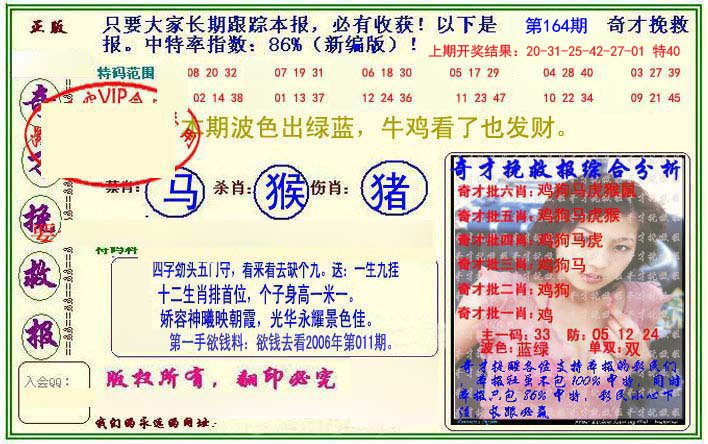 正版
只要大家长期跟踪本报，必有收获！以下是 第164期 奇才挽救
报。中特率指数：86%（新编版）！ 上期开奖结果：20-31-25-42-27-01 特40
特码范围 08 20 32 07 19 31 06 18 30 05 17 29 04 28 40 03 27 39
VIP 02 14 38 01 13 37 12 24 36 11 23 47 10 22 34 09 21 45
本期波色出绿蓝，牛鸡看了也发财。
奇
挽
救
报
马 杀肖： 猴 伤肖： 猪
特码料
四字幼头五门守，看来看去缺个九。送：一生九挂
十二生肖排首位，个子身高一米一。
娇容神曦映朝霞，光华永耀景色佳。
第一手欲钱料：欲钱去看2006年第011期。
入会QQ：
版权所有，翻印必究
我们的永远的网址：
奇才挽救报综合分析
奇才批六肖：鸡狗马虎猴鼠
奇才批五肖：鸡狗马虎猴
奇才批四肖：鸡狗马虎
奇才批三肖：鸡狗马
奇才批二肖：鸡狗
奇才批一肖：鸡
主一码：33 防：05 12 24
波色：蓝绿 单双：双
奇才挽救各位支持本报的彩民们
，本报注虽不包100%中特，同时
本报只包86%中特，彩民小心下
注，长跟必赢